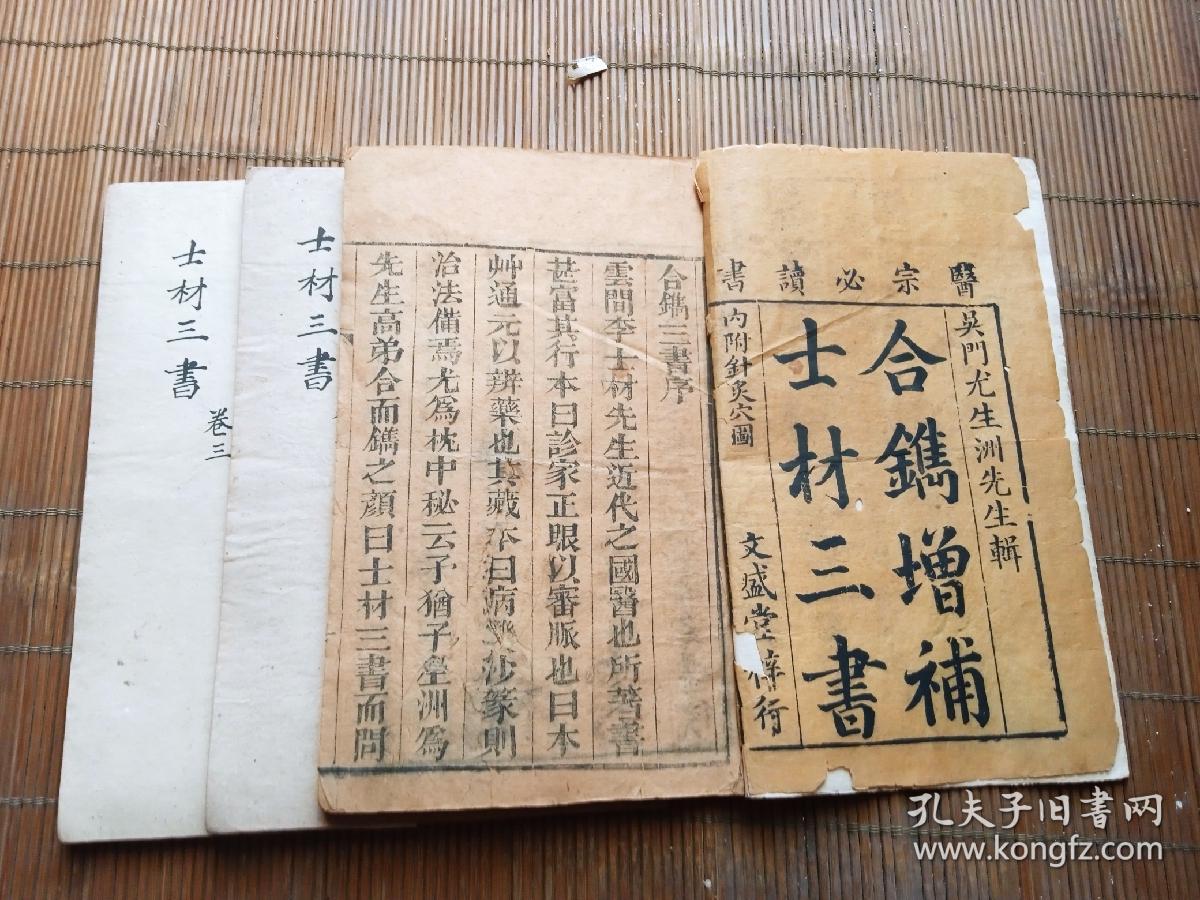 醫宗必讀書
吳門尤生洲先生輯
合鐫增補
士材三書
內附針炙穴圖
文盛堂梓行
合鐫三書序
雲間李士材先生近代之國醫也所著書
甚富其行本曰診家正眼以審脈也曰本
艸通元以辨藥也其藏本曰病機沙篆則
治法備焉尤爲枕中秘云予猶子生洲爲
先生高弟合而鐫之顔曰士材三書而問
士材三書
士材三書
卷三
孔夫子旧书网
www.kongfz.com